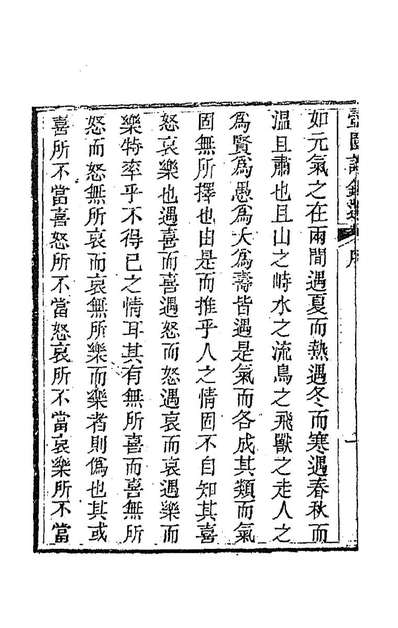 如元氣之在兩間遇夏而熱遇冬而寒遇春秋而
温且肅也且山之峙水之流鳥之飛獸之走人之
爲賢爲愚爲夭爲壽皆遇是氣而各成其類而氣
固無所擇也由是而推乎人之情固不自知其喜
怒哀樂也遇喜而喜遇怒而怒遇哀而哀遇樂而
樂特率乎不得已之情耳其有無所喜而喜無所
怒而怒無所哀而哀無所樂而樂者則僞也其或
喜所不當喜怒所不當怒哀所不當哀樂所不當